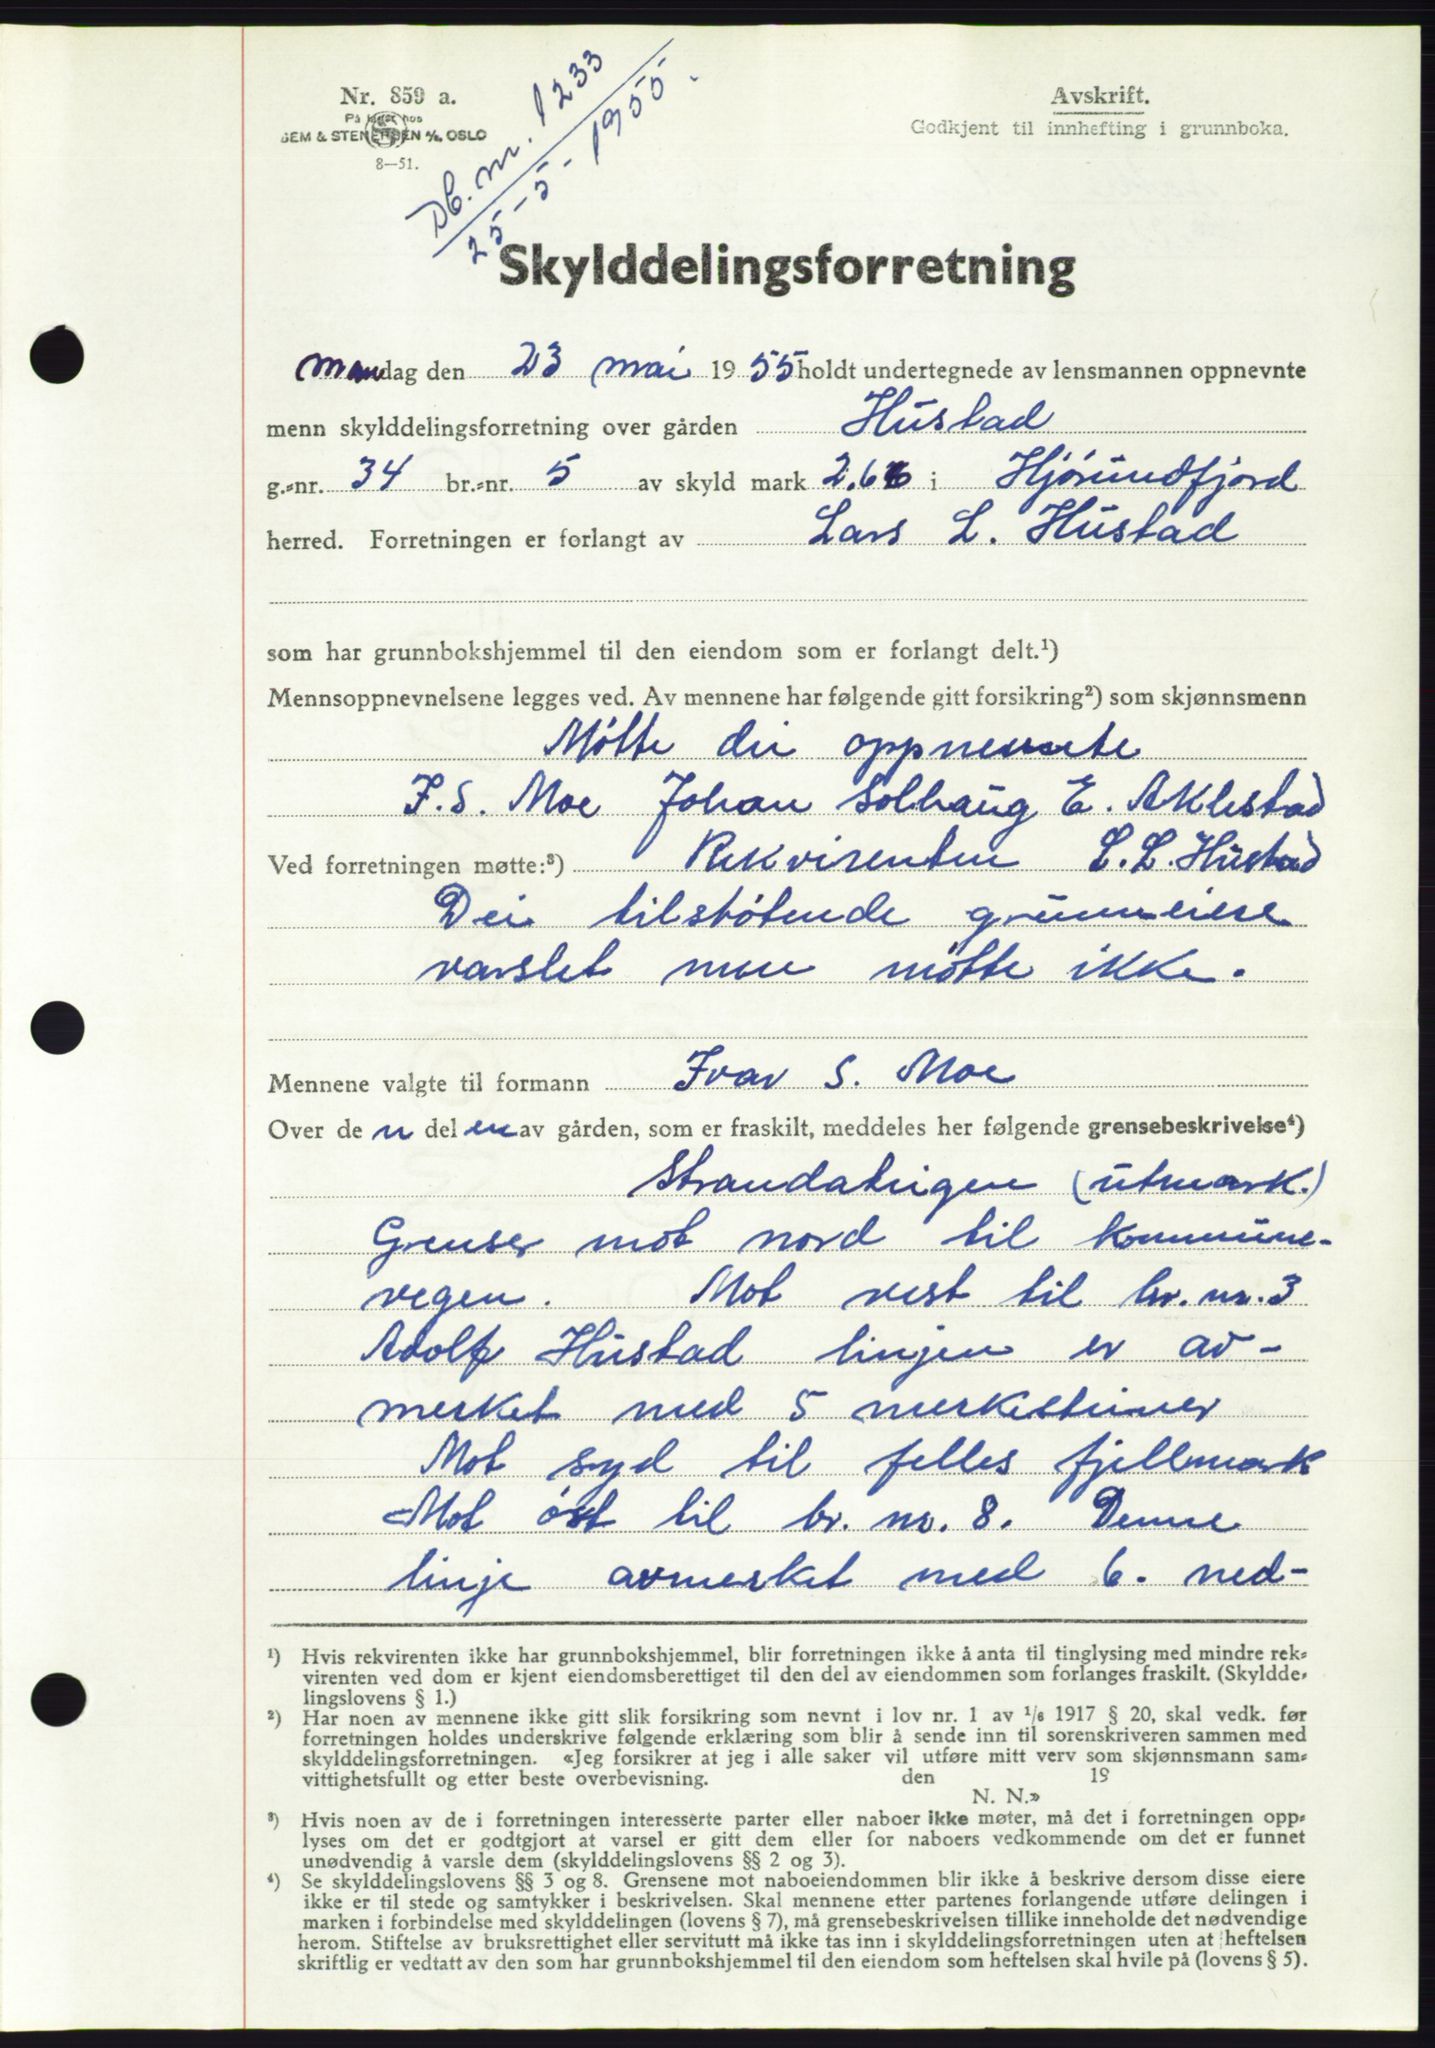 Nr. 859 a.
På lager hos
SEM & STENERSEN A/S, OSLO
8—51.
Db. nr. 1233
25-5-1955.
Avskrift.
Godkjent til innhefting i grunnboka.
Skylddelingsforretning
mandag den 23 mai 1955 holdt undertegnede av lensmannen oppnevnte
menn skylddelingsforretning over gården Hustad
g.-nr. 34 br.-nr. 5 av skyld mark 2.66 i Hjørundfjord
herred. Forretningen er forlangt av Lars L. Hustad
som har grunnbokshjemmel til den eiendom som er forlangt delt.¹)
Mennsoppnevnelsene legges ved. Av mennene har følgende gitt forsikring²) som skjønnsmenn
Møtte dei oppnevnte
I. S. Moe Johan Solhaug E. Aklestad
Ved forretningen møtte:³) Rekvirenten L. L. Hustad
Dei tilstøtende grunneiere
varslet men møtte ikke.
Mennene valgte til formann Ivar S. Moe
Over den delen av gården, som er fraskilt, meddeles her følgende grensebeskrivelse⁴)
Strandateigen (utmark.)
Grenser mot nord til kommune-
vegen. Mot vest til br. nr. 3
Adolf Hustad linjen er av-
merket med 5 merkesteiner
Mot syd til felles fjellmark
Mot øst til br. nr. 8. Denne
linje avmerket med 6. ned-
¹) Hvis rekvirenten ikke har grunnbokshjemmel, blir forretningen ikke å anta til tinglysing med mindre rek-
virenten ved dom er kjent eiendomsberettiget til den del av eiendommen som forlanges fraskilt. (Skyldde-
lingslovens § 1.)
²) Har noen av mennene ikke gitt slik forsikring som nevnt i lov nr. 1 av ¹/₆ 1917 § 20, skal vedk. før
forretningen holdes underskrive følgende erklæring som blir å sende inn til sorenskriveren sammen med
skylddelingsforretningen. «Jeg forsikrer at jeg i alle saker vil utføre mitt verv som skjønnsmann sam-
vittighetsfullt og etter beste overbevisning. den 19
N. N.»
³) Hvis noen av de i forretningen interesserte parter eller naboer ikke møter, må det i forretningen opp-
lyses om det er godtgjort at varsel er gitt dem eller for naboers vedkommende om det er funnet
unødvendig å varsle dem (skylddelingslovens §§ 2 og 3).
⁴) Se skylddelingslovens §§ 3 og 8. Grensene mot naboeiendommen blir ikke å beskrive dersom disse eiere
ikke er til stede og samtykker i beskrivelsen. Skal mennene etter partenes forlangende utføre delingen i
marken i forbindelse med skylddelingen (lovens § 7), må grensebeskrivelsen tillike inneholde det nødvendige
herom. Stiftelse av bruksrettighet eller servitutt må ikke tas inn i skylddelingsforretningen uten at heftelsen
skriftlig er vedtatt av den som har grunnbokshjemmel til den eiendom som heftelsen skal hvile på (lovens § 5).